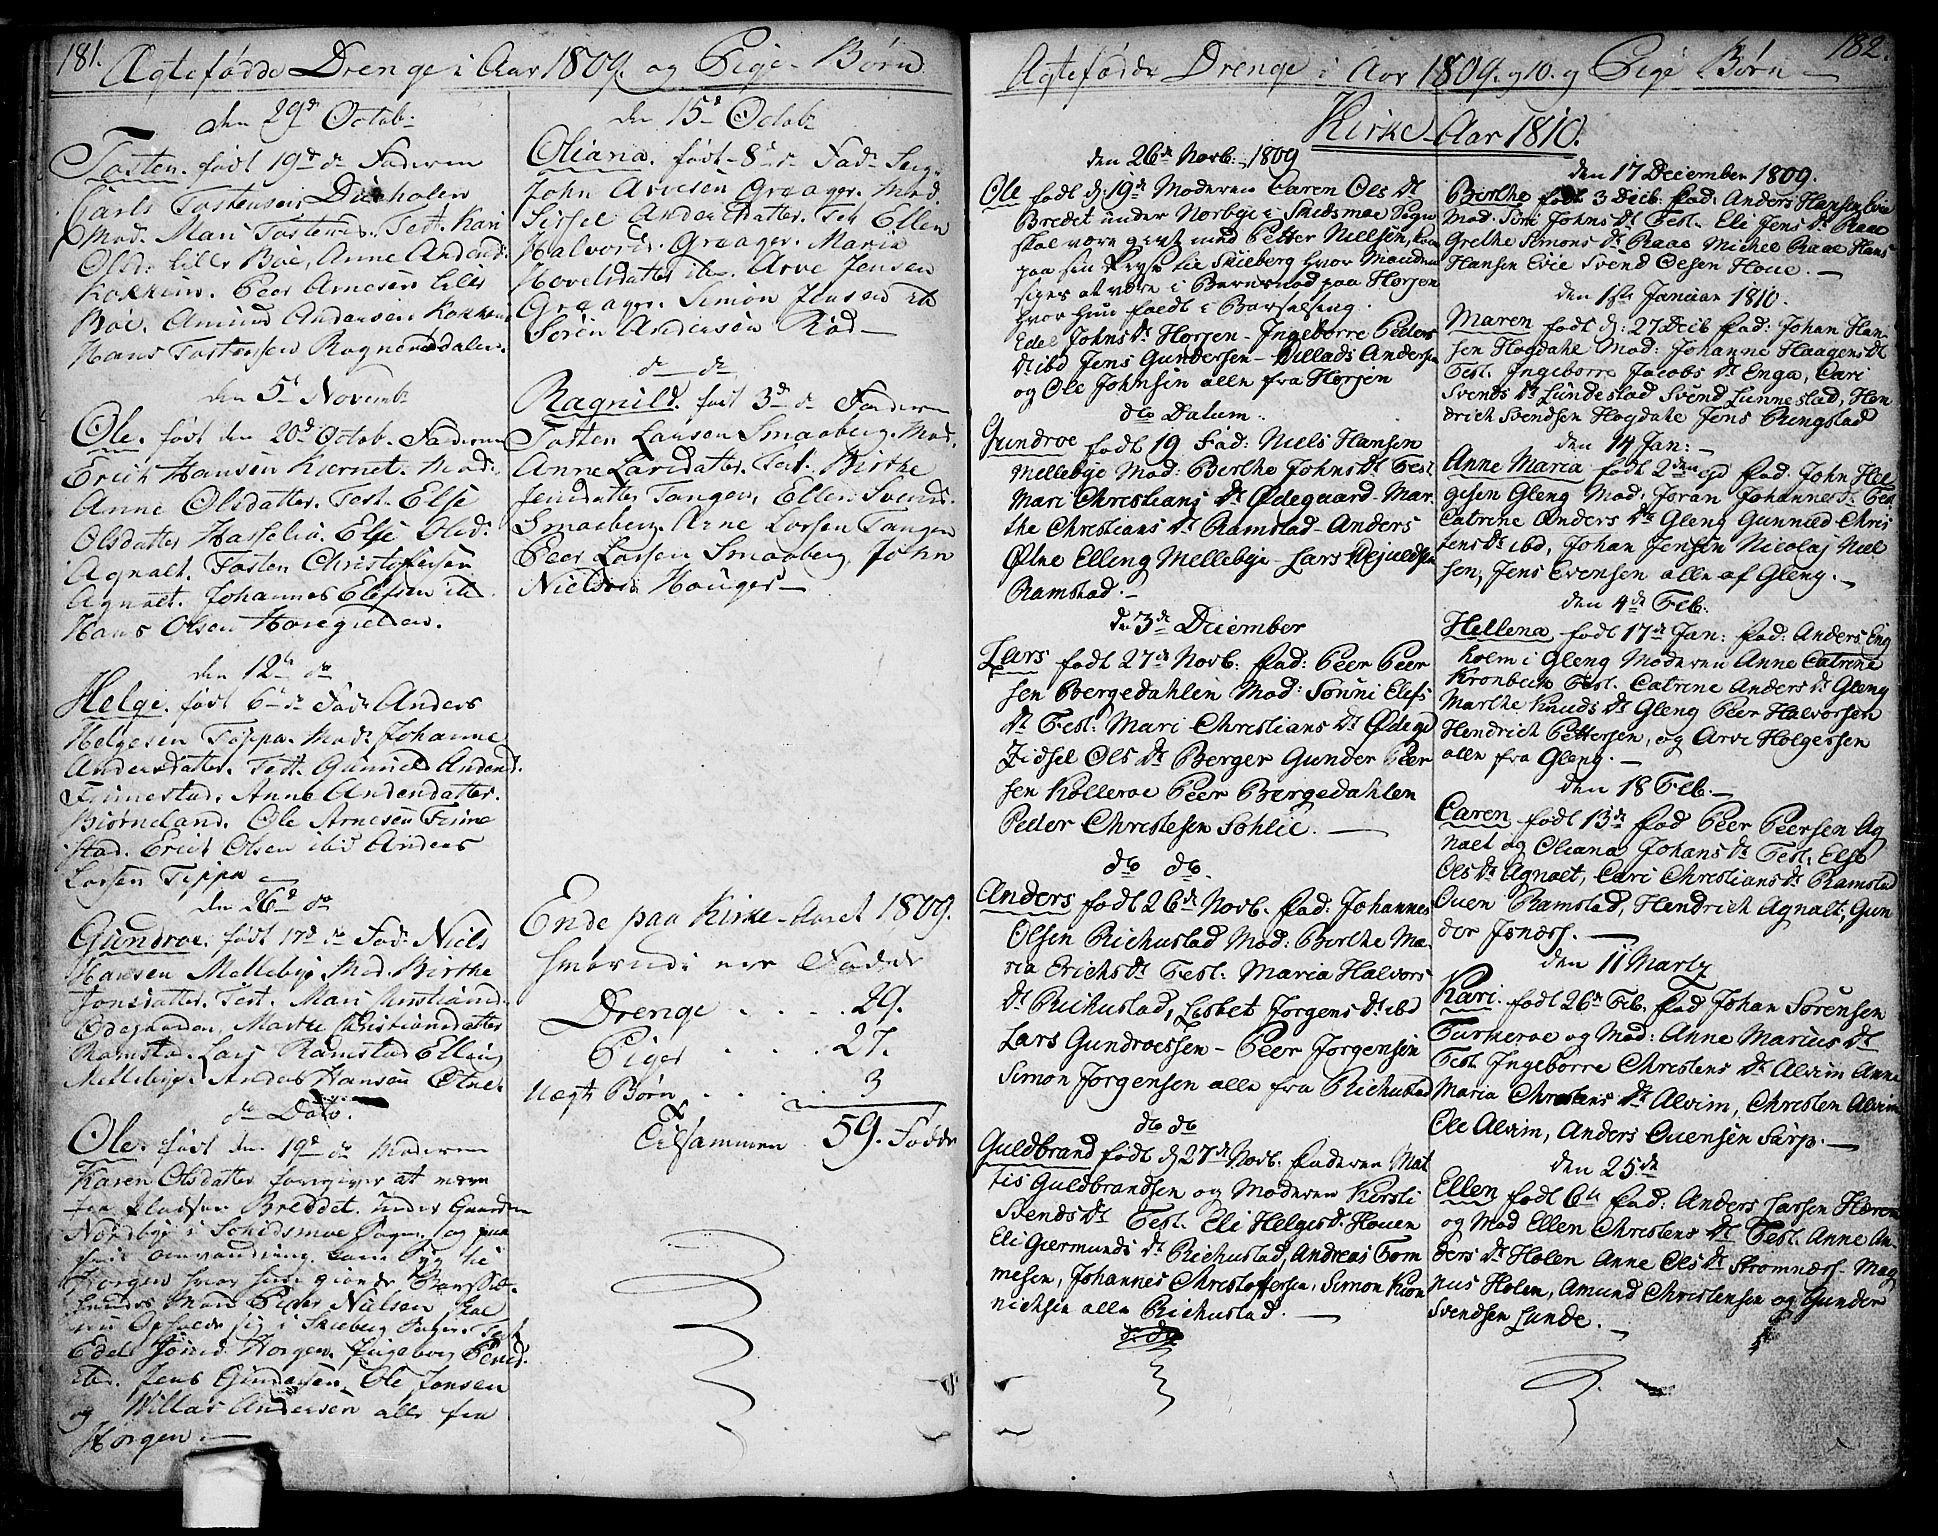 181.
Ægtefødde Drenge i Aar 1809. og Pige-Børn
den 29de Octob:
Tosten. født 19de do Faderen
Carls Tostensen
Mod. Mari Tostensd. Test. Kari
Olsd. Lille Bøe, Anne Andersd:
Kokkim. Peer Arnesen Lille
Bøe. Amund Andersen Kokkim
Hans Tostensen Rognerødalen.
den 5te Novemb
Ole. født den 20de Octob. Faderen
Erich Hansen Kiernet. Mod:
Anne Olsdatter. Test. Else
Olsdatter Hasselia. Else Olsd:
Agnalt. Tosten Christofersen
Agnalt. Johannes Elefsen ibd.
Hans Olsen
den 12te do
Helge. født 6te do Fad. Anders
Helgesen Tippa. Mod. Johanne
Andersdatter. Test. Gunnild Andersd.
Finnestad. Anne Andersdatter
Biørneland. Ole Arnesen Finne
stad. Erich Olsen ibid Anders
Larsen Tippa —
den 26de do
Gundroe. født 17de do Fad. Niels
Hansen Mellebye Mod. Birthe
Jonsdatter. Test. Mari Christiansd.
Ødegaarden, Marthe Christiansdatter
Ramstad. Lars Ramstad Elling
Mellebye. Anders Hansen Østne.
do Dato.
Ole. født den 19de do Moderen
Karen Olsdatter foregiver at være
fra Pladsen Breddet under Gaarden
Nordbye i Schidsmoe Sogn, og paa
sin omvandring kom syg til
Horgen hvor hun giorde Barssel
hendes Mand Peder Nielsen skal
nu Opholde sig i Skieberg Sogn. Test
Edel Jonsd. Horgen. Ingeborg Pedersd.
ibd. Jens Gundersen. Ole Jonsen
og Willas Andersen alle fra
Horgen. —
den 15de Octob
Oliana. født 8de do Fad. Serg.
John Arvesen Graager. Mod.
Sissel Andersdatter. Test Ellen
Halvorsd. Graager. Maria
Hovelsdatter ibd. Arve Jensen
Graager. Simon Jensen ibd
Søren Andersen Rød —
do do
Ragnild. født 3de do Faderen
Tosten Larssen Smaaberg. Mod.
Anne Larsdatter. Test. Birthe
Jensdatter Tangen, Ellen Svends.
Smaaberg. Arne Larsen Tangen
Peer Larsen Smaaberg. John
Nielsen Hauger —
Ende paa Kirke-Aaret 1809.
hvorudi ere Fødde
Drenge . . . . 29.
Piger . . . . 27.
Uægt Børn . . . . 3
Tilsammen 59. Fødde
182.
Ægtefødde Drenge i Aar 1809. og 10. og Pige Børn —
Kirke-Aar 1810.
den 26de Novb. 1809
Ole født d. 19de Moderen Caren Ols Dt
Bredet under Norbye i Skidsmoe Sogn
skal være givt med Petter Nielsen, kom
paa sin Reyse til Skieberg hvor Manden
siges at være i Barnsnød paa Horjen
hvor hun fødte i Barselseng.
Edel Johns Dt Horjen - Ingeborre Peders
Dt ibd Jens Gundersen - Villads Andersen
og Ole Johnsen alle fra Horjen
dto Datum.
Gundroe født 19 Fad: Niels Hansen
Mellebye Mod: Berthe Johns Dt Test
Mari Christians Dt Ødegaard - Mar-
the Christians Dt Ramstad - Anders
Østne Elling Mellebye - Lars
Ramstad. —
den 3de December
Lars født 27de Novb. Fad: Peer Peer
sen Bergedahlen Mod: Sønni Elefs
Dt Test: Mari Christians Dt Ødegd
Zidsel Ols Dt Berger Gunder Peer
sen Kolleroe Peer Bergedahlen
Peder Christesen Sohlie. —
dto dto.
Anders født 26de Novb. Fad: Johannes
Olsen Richustad Mod: Berthe Ma-
ria Erichs Dt Test. Maria Halvors
Dt Richustad, Lisbet Jorgens Dt ibd
Lars Gundroessen - Peer Jorgensen
Simon Jorgensen alle fra Richustad
dto dto
Guldbrand født d. 27de Novb. Faderen Mat
tis Guldbrandsen og Moderen Kersti
Svends Dt Test. Eli Helges Dt Houen
Eli Giermunds Dt Richustad, Andreas Tom
mesen, Johannes Christoffersen, Simon Kion
nichsen alle Richustad. —
den 17 December 1809.
Berthe født 3 Decb. Fad: Anders Hansen Evie
Mod: Siri Johns Dt Test. Eli Jens Dt Raae
Grethe Simons Dt Raae Michel Raae Hans
Hansen Evie Svend Olsen Houe. —
den 1ste Januar 1810.
Maren født d: 27 Decb Fad: Johan Han
sen Hogdahl Mod: Johanne Haagens Dt
Test. Ingeborre Jacobs Dt Enga, Cari
Svends Dt Lundestad Svend Lunnestad, Hen
drich Svendsen Hogdahl Jens Ringstad
den 14 Jan: —
Anne Maria født 2den Fad. John Hel
gesen Gleng Mod. Joran Johannes Dt Test
Catrine Anders Dtr Gleng Gunnild Chris
tens Dt ibd, Johan Jensen Nicolaj Niel
sen, Jens Evensen alle af Gleng. —
den 4de Feb.
Hellena født 17de Jan: Fad: Anders Eng
holm i Gleng Moderen Anne Catrine
Kronbech Test. Catrine Anders Dt Gleng
Marthe Knuds Dt Gleng Peer Halvorsen
Hendrich Pettersen, og Arve Holgersen
alle fra Gleng. —
den 18 Feb. —
Caren født 13de Fad Peer Peersen Ag
nalt og Oliana Johans Dt Test. Else
Ols Dt Agnalt, Cari Christians Dt Ramstad
Ouen Ramstad, Hendrich Agnalt, Gun
der —
den 11 Martz
Kari. født 26de Feb. Fad Johan Sørensen
Turkeroe og Mod: Anne Marius Dt
Test Ingeborre Christens Dt Alvim Anne
Maria Christens Dt Alvim, Christen Alvim
Ole Alvim, Anders Ouensen Sarp. —
den 25de
Ellen født 6te Fad: Anders Larsen
og Mod Ellen Christens Dt Test. Anne An-
ders Dt Holen Anne Ols Dt Stromnæs. Mag
nus Holen, Amund Christensen og Gunder
Svendsen Lunde. —